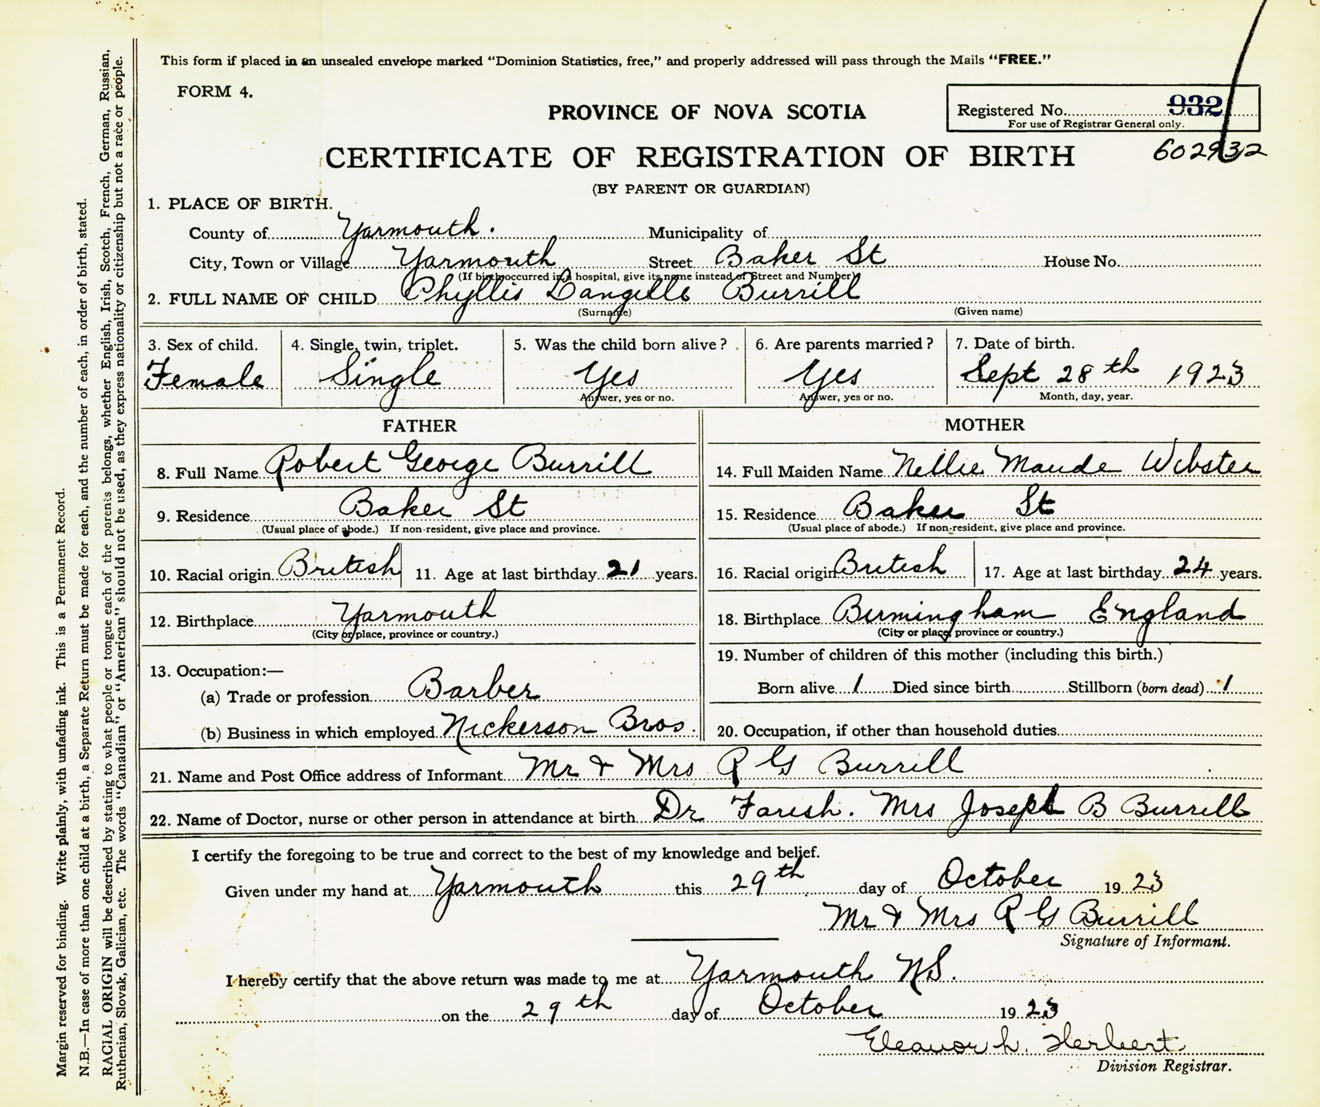 This form if placed in an unsealed envelope marked "Dominion Statistics, free," and properly addressed will pass through the Mails "FREE."
FORM 4.
PROVINCE OF NOVA SCOTIA
Registered No. 932
For use of Registrar General only.
602932
CERTIFICATE OF REGISTRATION OF BIRTH
(BY PARENT OR GUARDIAN)
1. PLACE OF BIRTH.
County of Yarmouth. Municipality of
City, Town or Village Yarmouth Street Baker St House No.
(If birth occurred in a hospital, give its name instead of Street and Number)
2. FULL NAME OF CHILD Phyllis Langille Burrill
(Surname) (Given name)
3. Sex of child. 4. Single, twin, triplet. 5. Was the child born alive? 6. Are parents married? 7. Date of birth.
Female Single Yes Yes Sept 28th 1923
Answer, yes or no. Answer, yes or no. Month, day, year.
FATHER MOTHER
8. Full Name Robert George Burrill 14. Full Maiden Name Nellie Maude Webster
9. Residence Baker St 15. Residence Baker St
(Usual place of abode.) If non-resident, give place and province. (Usual place of abode.) If non-resident, give place and province.
10. Racial origin British 11. Age at last birthday 21 years. 16. Racial origin British 17. Age at last birthday 24 years.
12. Birthplace Yarmouth 18. Birthplace Birmingham England
(City or place, province or country.) (City or place, province or country.)
13. Occupation:— 19. Number of children of this mother (including this birth.)
(a) Trade or profession Barber Born alive 1 Died since birth Stillborn (born dead) 1
(b) Business in which employed Nickerson Bros. 20. Occupation, if other than household duties
21. Name and Post Office address of Informant Mr & Mrs R G Burrill
22. Name of Doctor, nurse or other person in attendance at birth Dr Farish. Mrs Joseph B Burrill
I certify the foregoing to be true and correct to the best of my knowledge and belief.
Given under my hand at Yarmouth this 29th day of October 1923
Mr & Mrs R G Burrill
Signature of Informant.
I hereby certify that the above return was made to me at Yarmouth N.S.
on the 29th day of October 1923
Eleanor L. Herbert
Division Registrar.
Margin reserved for binding. Write plainly, with unfading ink. This is a Permanent Record.
N.B.—In case of more than one child at a birth, a Separate Return must be made for each, and the number of each, in order of birth, stated.
RACIAL ORIGIN will be described by stating to what people or tongue each of the parents belongs, whether English, Irish, Scotch, French, German, Russian,
Ruthenian, Slovak, Galician, etc. The words "Canadian" or "American" should not be used, as they express nationality or citizenship but not a race or people.